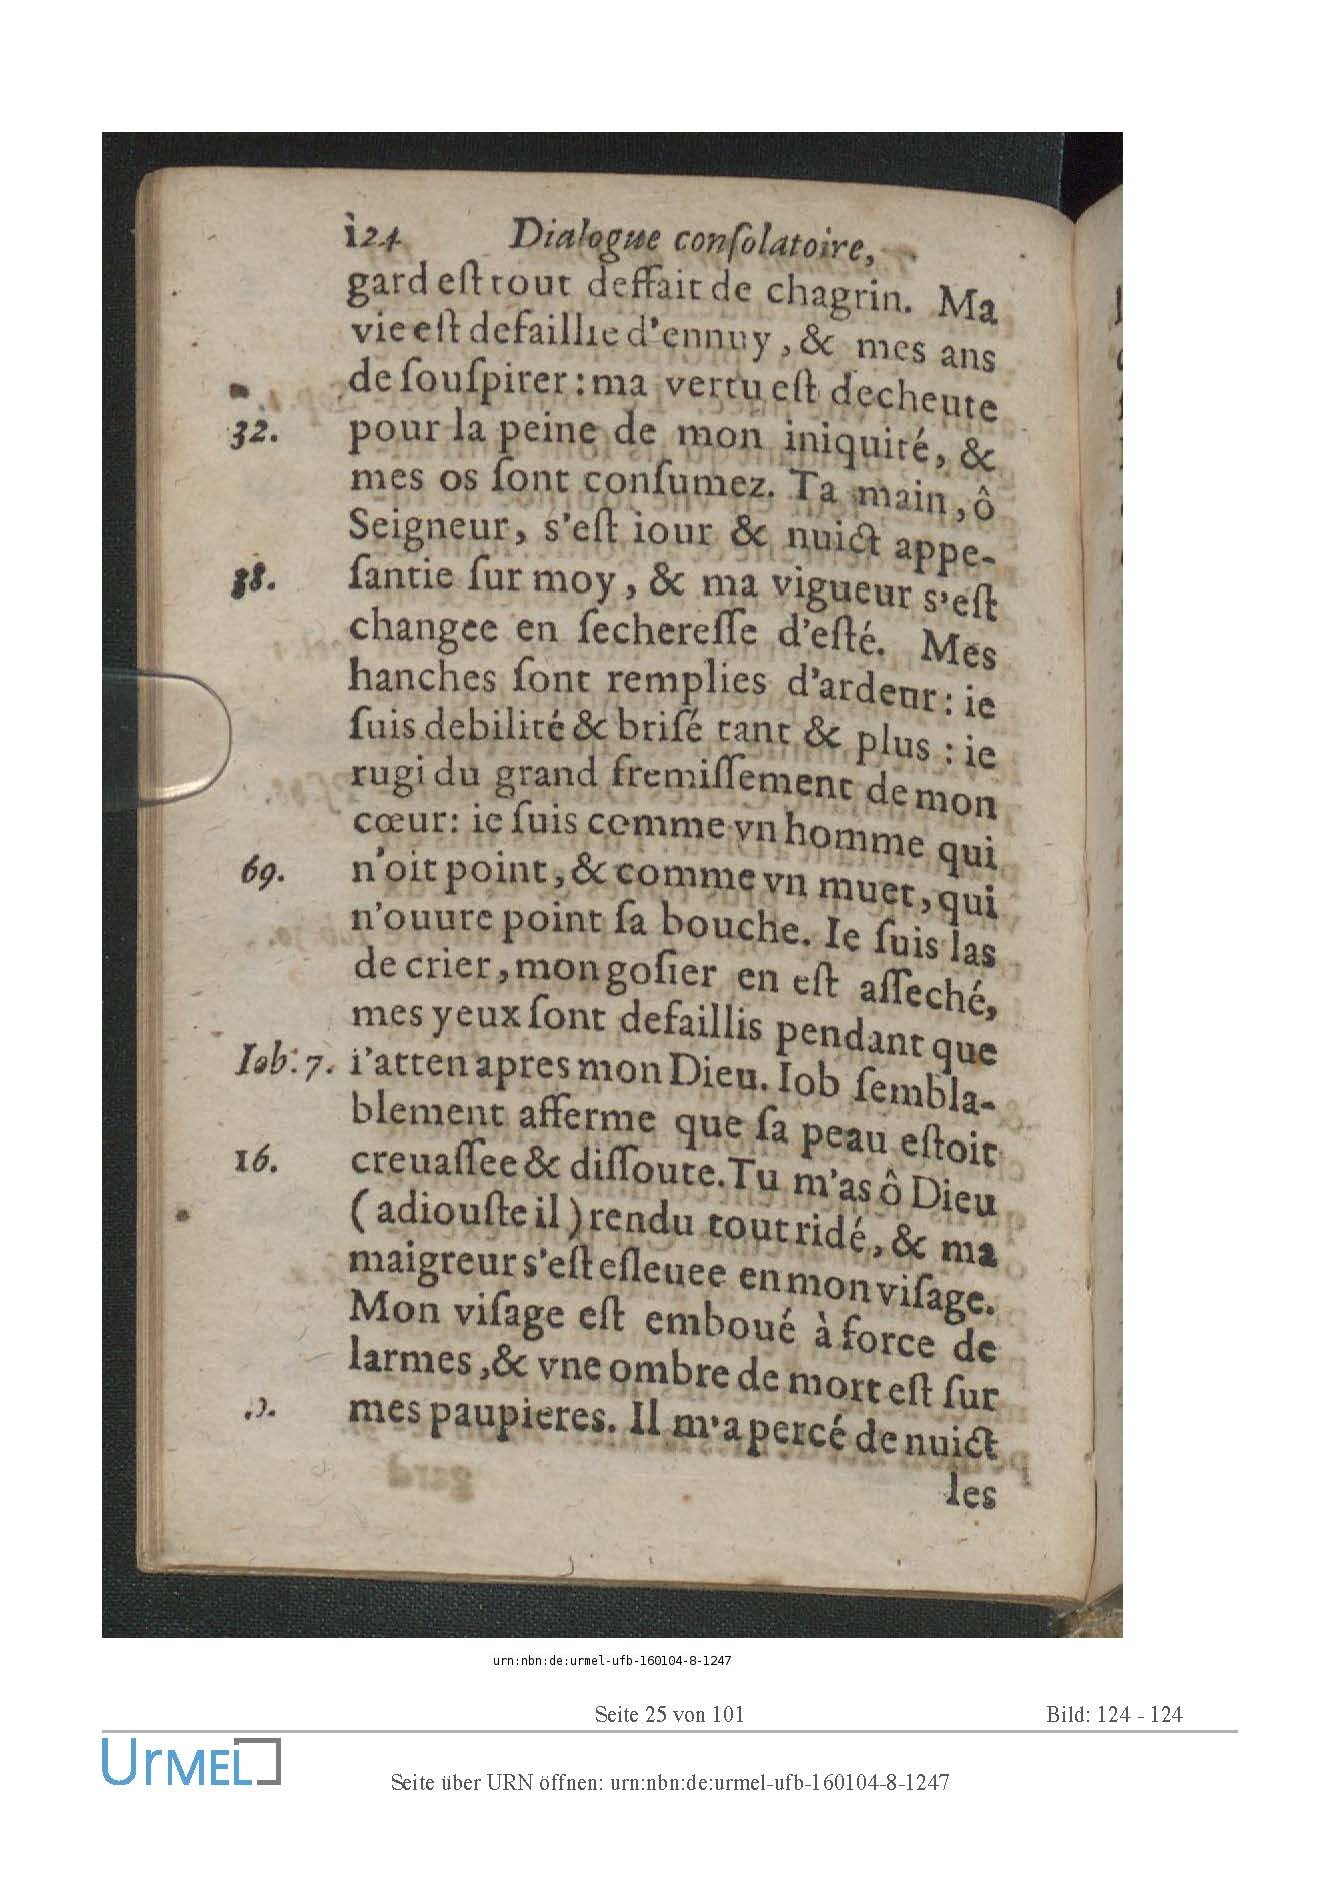 124 Dialogue conſolatoire,
gard eſt tout deffait de chagrin. Ma
vie eſt defaillie d'ennuy, & mes ans
de ſouſpirer: ma vertu eſt decheute
32. pour la peine de mon iniquité, &
mes os ſont conſumez. Ta main, ô
Seigneur, s'eſt iour & nuict appe-
38. ſantie ſur moy, & ma vigueur s'eſt
changee en ſechereſſe d'eſté. Mes
hanches ſont remplies d'ardeur: ie
ſuis debilité & briſé tant & plus: ie
rugi du grand fremiſſement de mon
cœur: ie ſuis comme vn homme qui
69. n'oit point, & comme vn muet, qui
n'ouure point ſa bouche. Ie ſuis las
de crier, mon goſier en eſt aſſeché,
mes yeux ſont defaillis pendant que
Iob. 7. i'atten apres mon Dieu. Iob ſembla-
blement afferme que ſa peau eſtoit
16. creuaſſee & diſſoute. Tu m'as ô Dieu
(adiouſte il) rendu tout ridé, & ma
maigreur s'eſt eſleuee en mon viſage.
Mon viſage eſt emboué à force de
larmes, & vne ombre de mort eſt ſur
mes paupieres. Il m'a percé de nuict
les
urn:nbn:de:urmel-ufb-160104-8-1247
Seite 25 von 101 Bild: 124 - 124
UrMEL
Seite über URN öffnen: urn:nbn:de:urmel-ufb-160104-8-1247